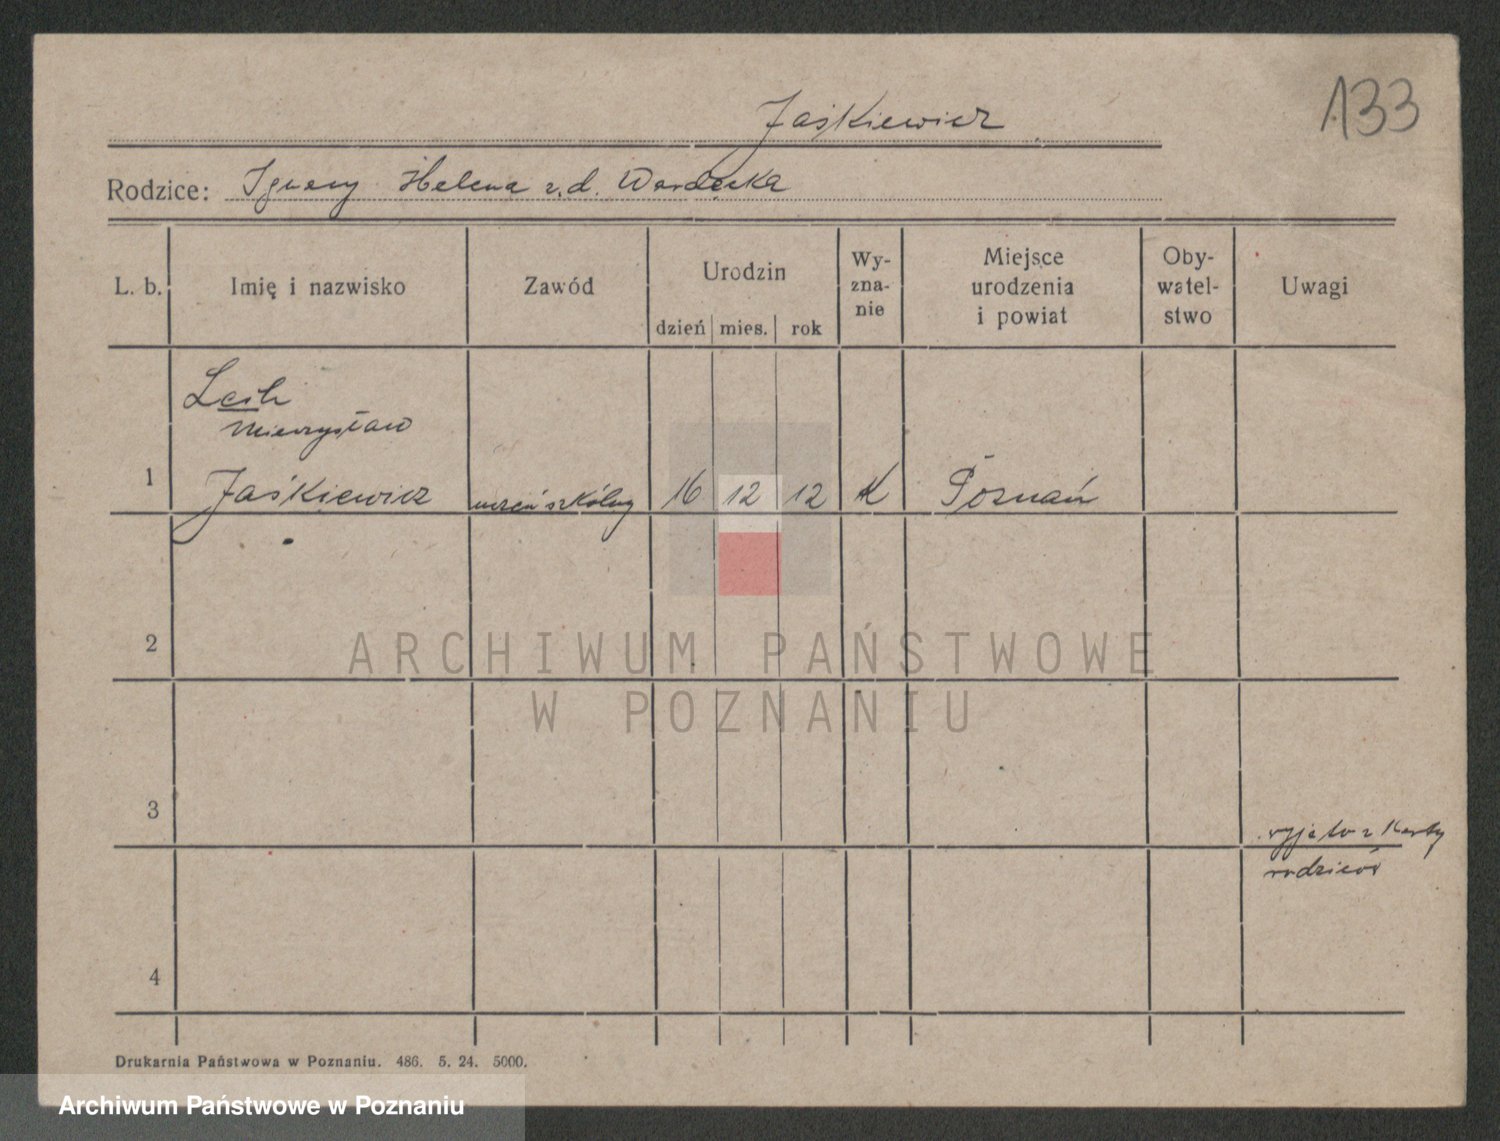 133
Jaśkiewicz
Rodzice: Ignacy Helena z.d. Wardęska
L. b. Imię i nazwisko Zawód Urodzin dzień mies. rok Wy-zna-nie Miejsce urodzenia i powiat Oby-watel-stwo Uwagi
Lech
Mieczysław
1 Jaśkiewicz uczeń szkólny 16 12 12 K Poznań
2
ARCHIWUM PAŃSTWOWE
W POZNANIU
3
wyjęto z Karty
rodziców
4
Drukarnia Państwowa w Poznaniu. 486. 5. 24. 5000.
Archiwum Państwowe w Poznaniu